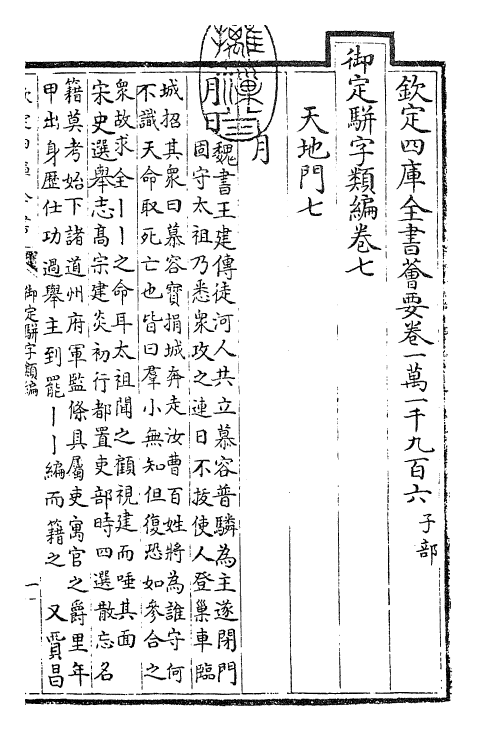 欽定四庫全書薈要卷一萬一千九百六 子部
御定駢字類編卷七
天地門七
月
月日 魏書王建傳徒河人共立慕容普驎為主遂閉門
固守太祖乃悉衆攻之連日不拔使人登巢車臨
城招其衆曰慕容寶捐城奔走汝曹百姓將為誰守何
不識天命取死亡也皆曰羣小無知但復恐如參合之
衆故求全丨丨之命耳太祖聞之顧視建而唾其面
宋史選舉志高宗建炎初行都置吏部時四選散忘名
籍莫考始下諸道州府軍監條具屬吏寓官之爵里年
甲出身歷仕功過舉主到罷丨丨編而籍之 又賈昌
御定駢字類編
一